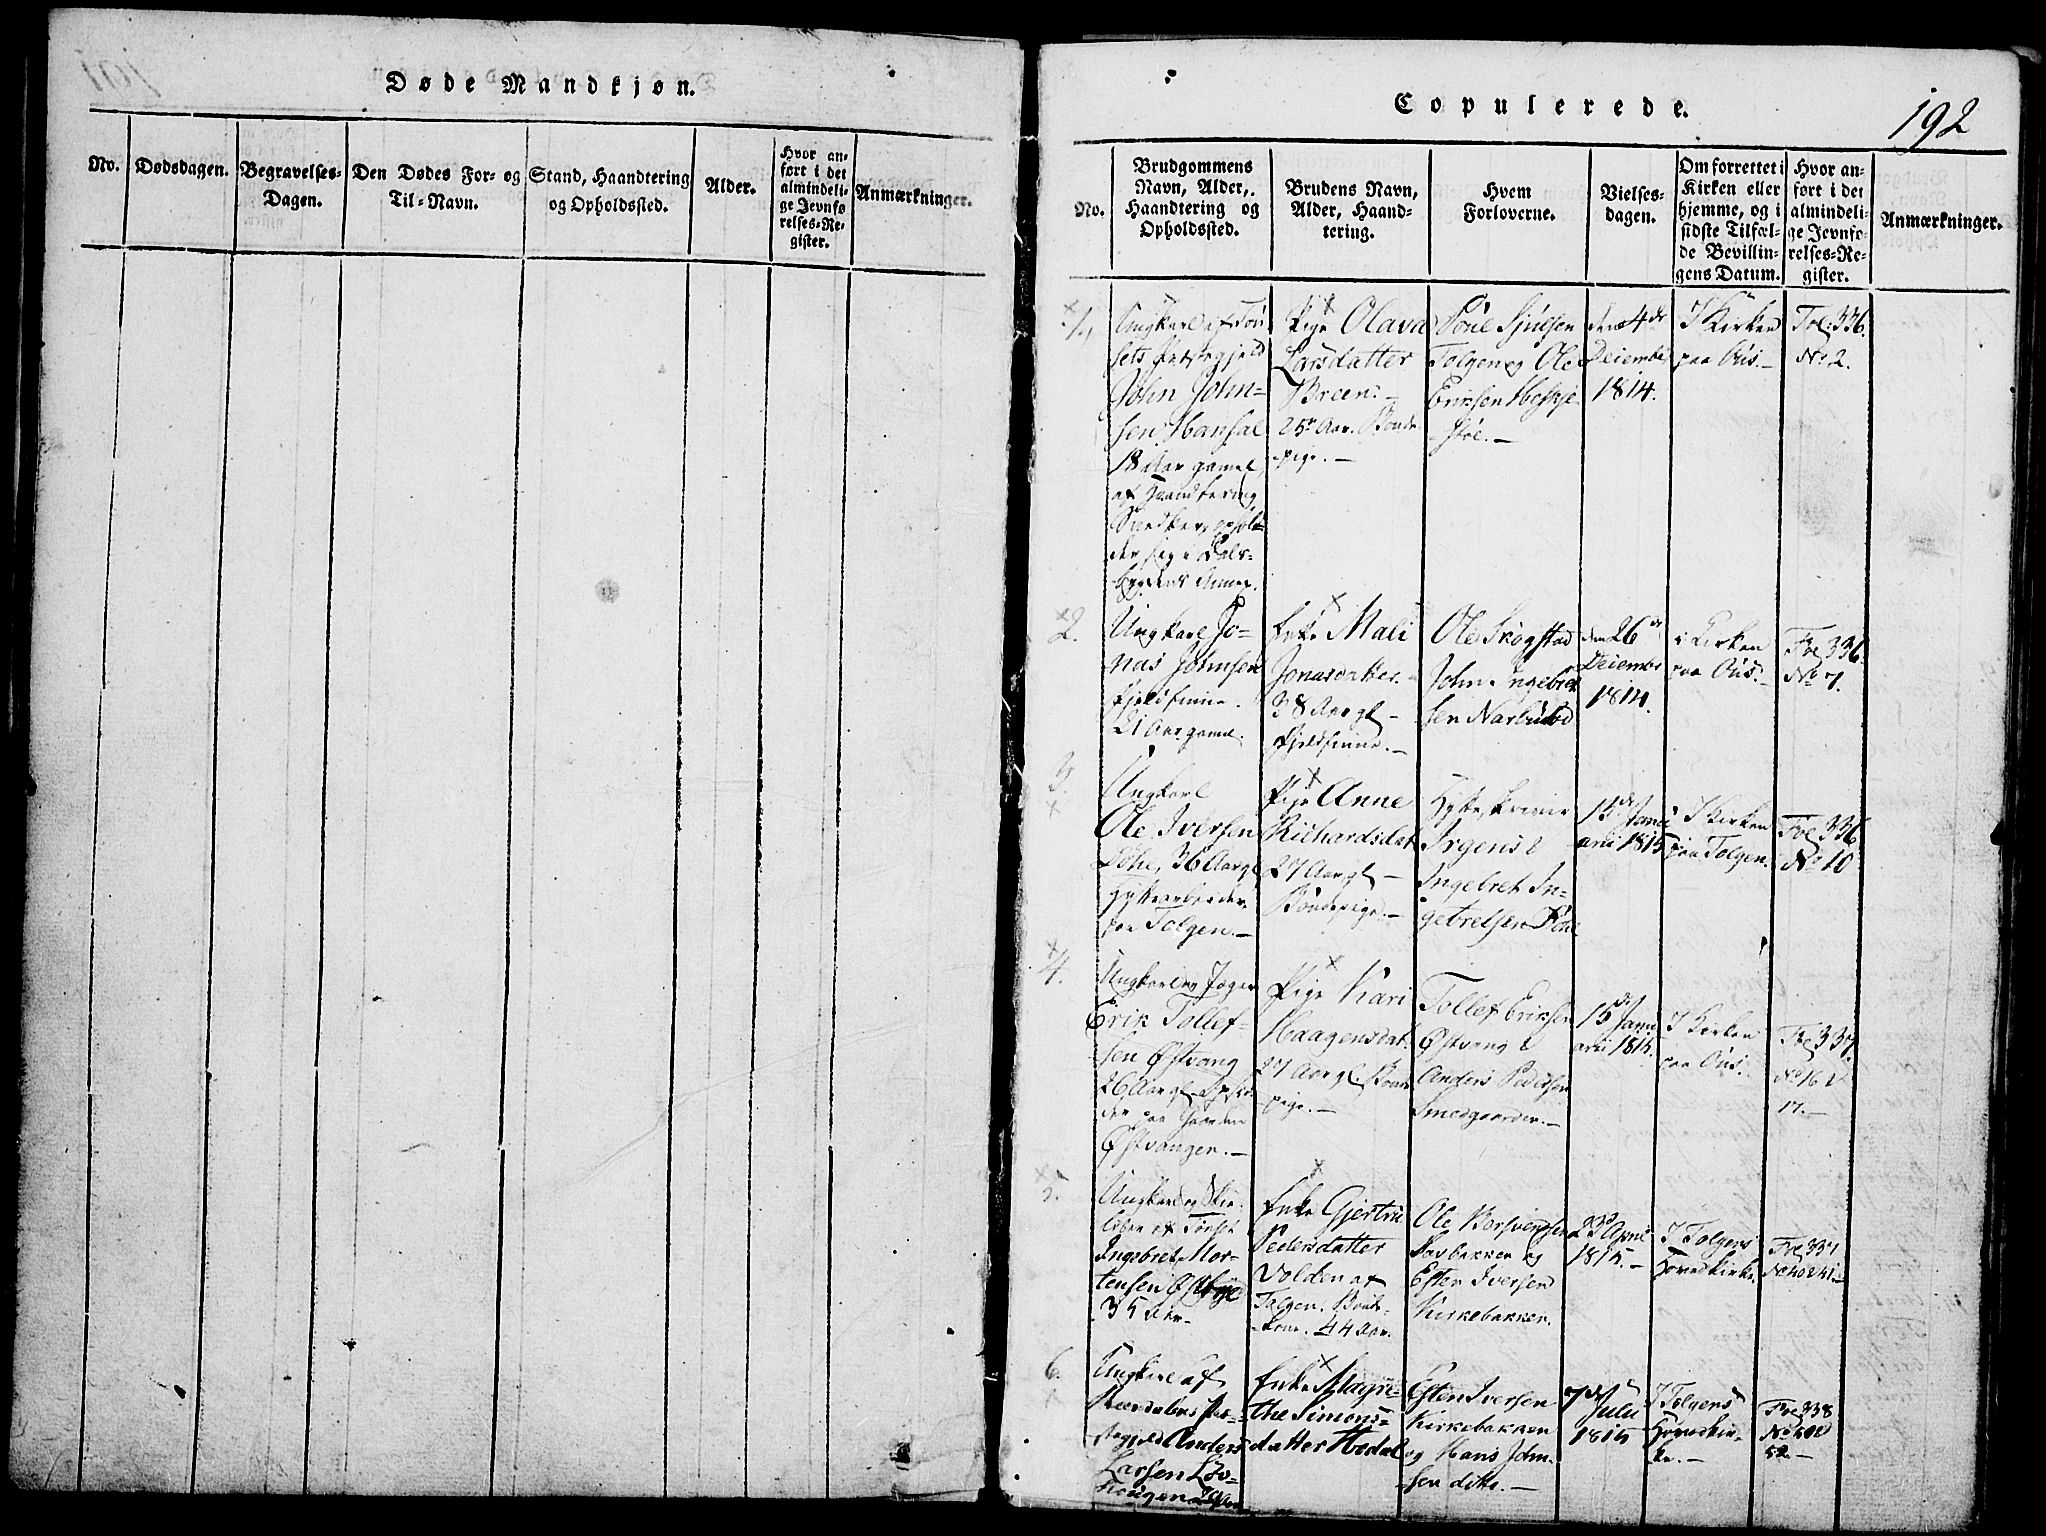 Døde Mandkjøn.
No.
Dødsdagen.
Begravelses-
Dagen.
Den Dødes For- og
Til-Navn.
Stand, Haandtering
og Opholdssted.
Alder.
Hvor an-
ført i det
almindeli-
ge Jevnfø
relses-Re-
gister.
Anmærkninger.
Copulerede.
192
No.
Brudgommens
Navn, Alder,
Haandtering og
Opholdssted.
Brudens Navn,
Alder, Haand-
tering.
Hvem
Forloverne.
Vielses-
dagen.
Om forrettet i
Kirken eller
hjemme, og i
sidste Tilfæl-
de Bevillin-
gens Datum.
Hvor an-
ført i det
almindeli-
ge Jevnfø-
relses-Re-
gister.
Anmærkninger.
1,
Ungkarl af Tøn
sets Præstegjeld
John John-
sen Hansal
18 Aar gamel
af Haandtering
Snedker, ophol-
der sig i Dals-
bygdens Annex.
Pige Olava
Larsdatter
Breen.
25 Aar. Bonde
pige.
Tolgen og Ole
Eriksen
den 4de
Deiember
1814.
I Kirken
paa Øus.
Fol: 336.
No 2.
2.
Ungkarl Jo-
nas Johnsen
Fjeldfinne.
21 Aar gamel.
Enke Mali
Jonasdatter.
38 Aar gl
Fjeldfinne.
Ole Skogstad
John Ingebret
sen Narbuvod
den 26de
Deiembr
1814.
i Kirken
paa Øus.
Fol 336.
No 7.
3.
Ungkarl
Ole Iversen
36 Aar gl
Hyttearbeider
paa Tolgen.
Pige Anne
Richardsdat
27 Aar gl
Bondepige.
Hytteskriver
Irgens &
Ingebret In-
gebretsen
15de Janu
arii 1815
I Kirken
paa Tolgen.
Fol 336
No 10
4.
Ungkarl og Jæger
Erik Tollef-
sen Østvang
26 Aar gl ophol
der paa Gaarden
Østvangen.
Pige Kari
Haagensdat.
27 Aar gl. Bonde
pige.
Tollef Eriksen
Østvang &
Anders Pedersen
Smedgaarden.
15de Janu
arii 1815.
I Kirken
paa Øus.
Fol 337.
No 16 &
17.
5.
Ungkarl og
af Tønset
Ingebret Mor-
tensen Østbye
35 Aar
Enke Gjertru
Pedersdatter
Volden af
Tolgen. Bonde
kone. 44 Aar.
Ole Borsvendsen
og
Esten Iversen
Kirkebakken.
23de April
1815.
I Tolgens
Hovedkirke.
Fol 337
No 40 & 41.
6.
Ungkarl af
Anders
Larsen Løv-
Enke Magre-
the Simons-
datter Hodal
Esten Iversen
Kirkebakken
og Hans John-
sen ditto.
7de Julii
1815
I Tolgens
Hovedkir-
ke.
Fol 338
No 51 &
52.